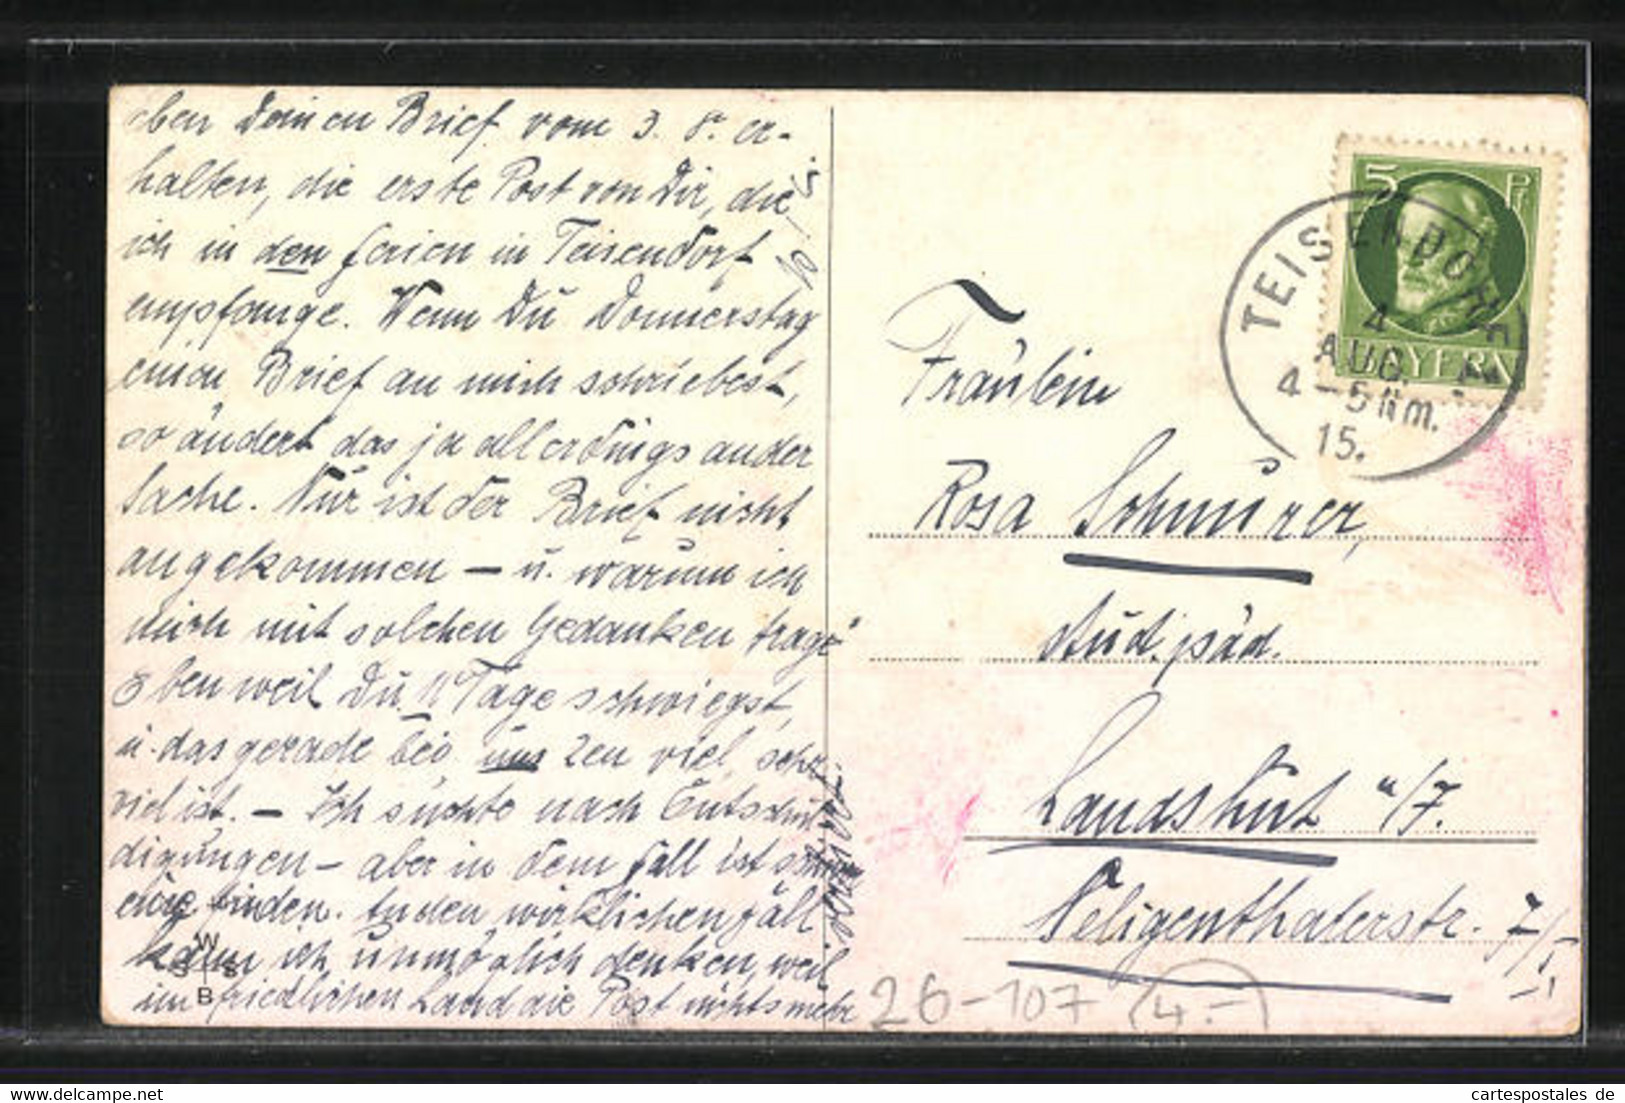 eben Deinen Brief vom 3. 8. er-
halten, die erste Post von Dir, die
ich in den Ferien in Teisendorf
empfange. Wenn Du Donnerstag
einen Brief an mich schriebest,
so ändert das ja allerdings an der
Sache. Nur ist der Brief nicht
angekommen – u. warum ich
mich mit solchen Gedanken trage?
Eben weil Du 11 Tage schwiegst,
u. das gerade bei uns zen viel, sehr
viel ist. – Ich suchte nach Entschul
digungen – aber in dem Fall ist
eine finden. An den wirklichen Fall
kann ich unmöglich denken, weil
im friedlichen Land die Post nichts mehr
verliert
W
S S
B
5 Pf
BAYERN
TEISENDORF
4
AUG.
4-5 Nm.
15.
Fräulein
Rosa Schnurer,
stud. päd.
Landshut a/I.
Seligenthalerstr. 7/I
26-107 (4.-)
www.delcampe.net
cartespostales de